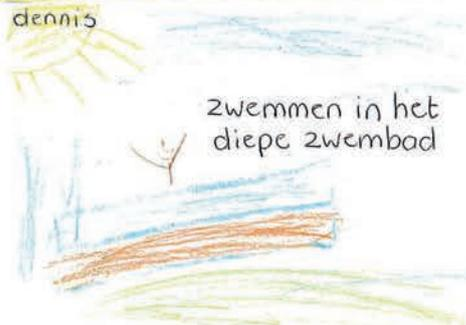 dennis
zwemmen in het
diepe zwembad